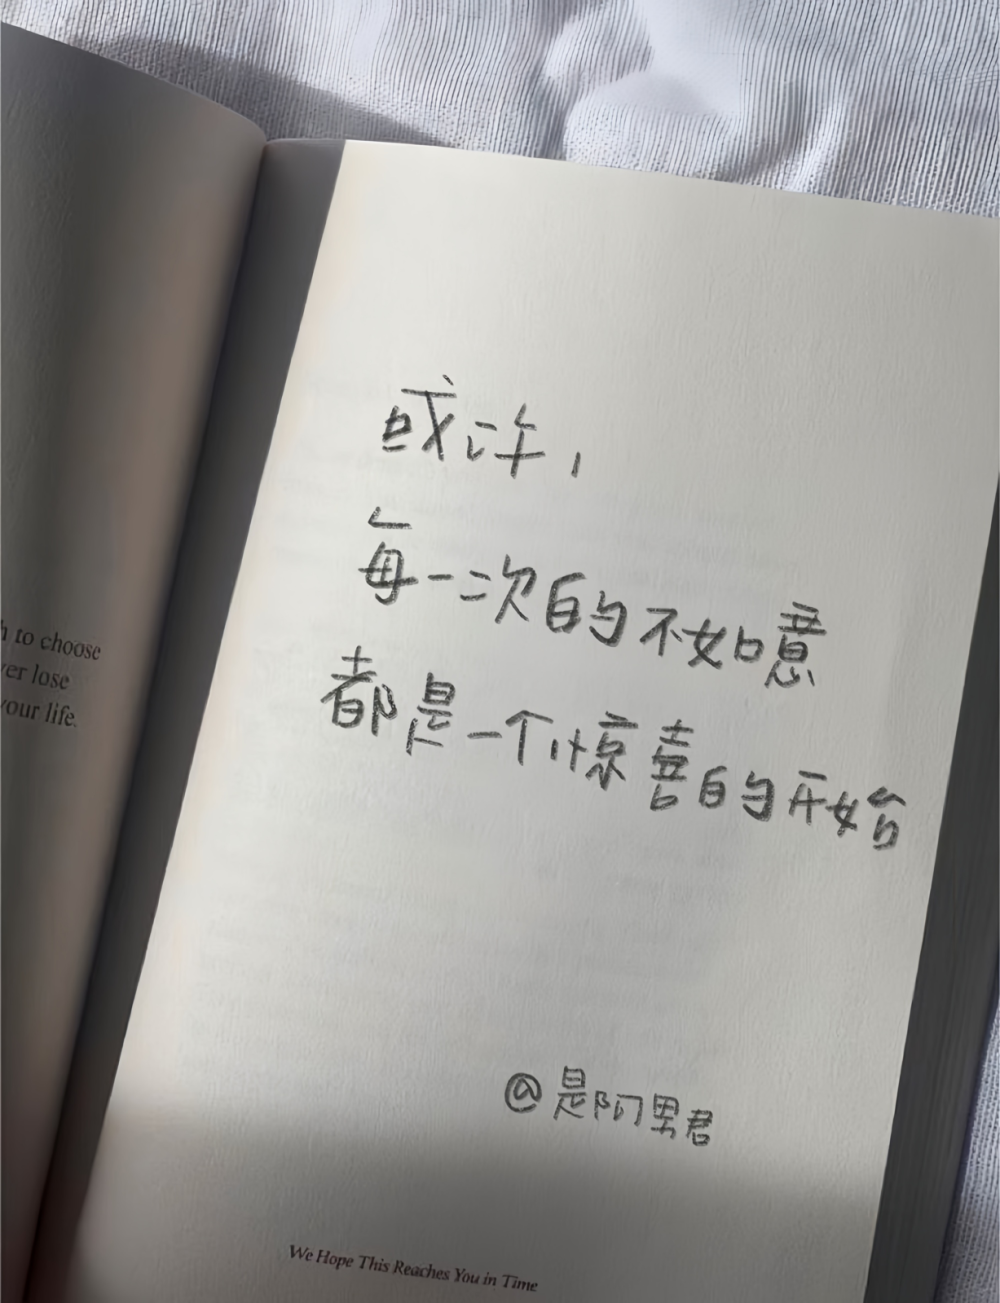 h to choose
ver lose
your life.
或许，
每一次的不如意
都是一个惊喜的开始
@是阿男君
We Hope This Reaches You in Time